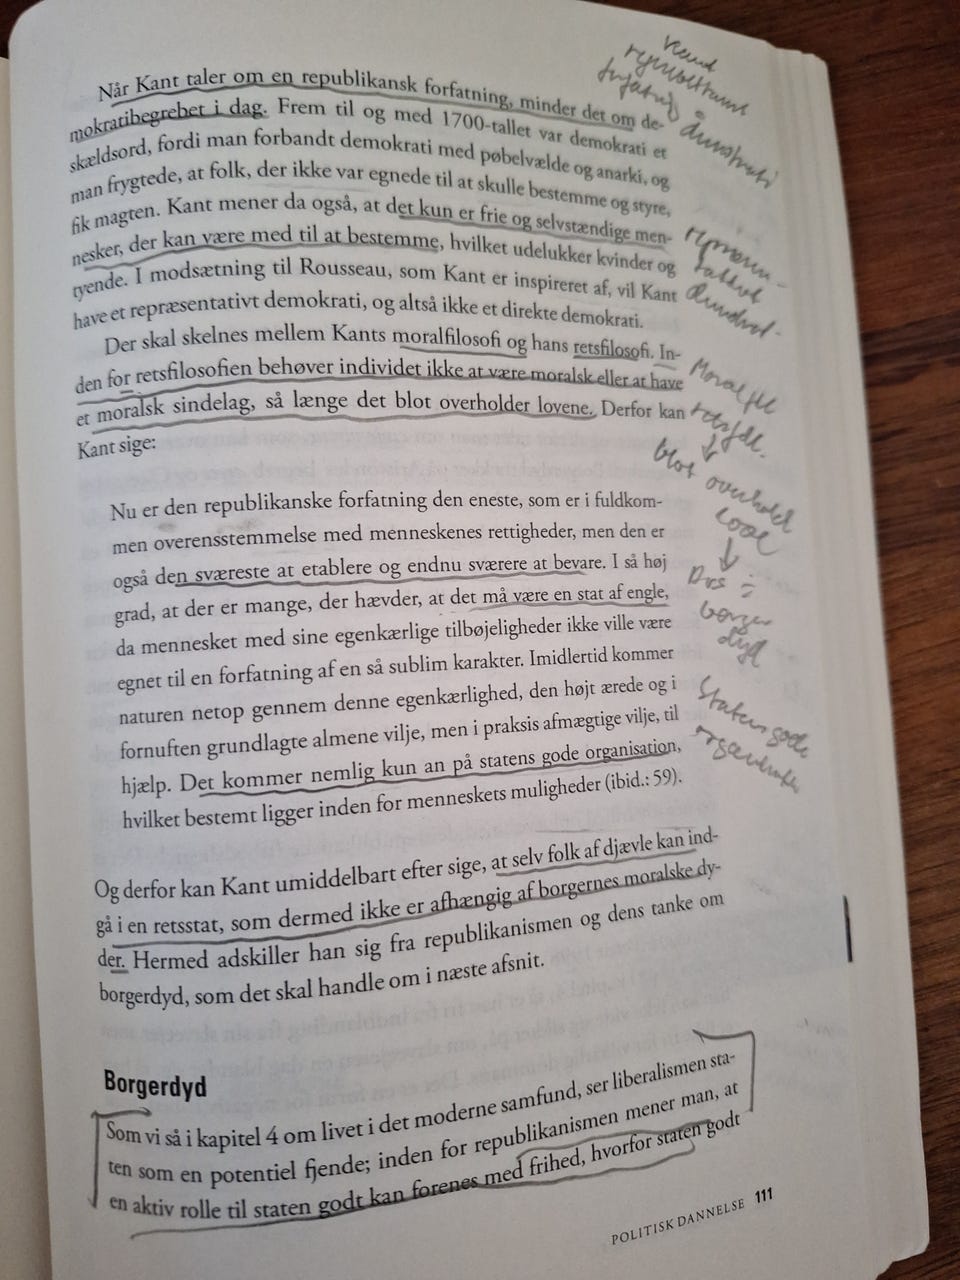 Når Kant taler om en republikansk forfatning, minder det om de-
mokratibegrebet i dag. Frem til og med 1700-tallet var demokrati et
skældsord, fordi man forbandt demokrati med pøbelvælde og anarki, og
man frygtede, at folk, der ikke var egnede til at skulle bestemme og styre,
fik magten. Kant mener da også, at det kun er frie og selvstændige men-
nesker, der kan være med til at bestemme, hvilket udelukker kvinder og
tyende. I modsætning til Rousseau, som Kant er inspireret af, vil Kant
have et repræsentativt demokrati, og altså ikke et direkte demokrati.
Der skal skelnes mellem Kants moralfilosofi og hans retsfilosofi. In-
den for retsfilosofien behøver individet ikke at være moralsk eller at have
et moralsk sindelag, så længe det blot overholder lovene. Derfor kan
Kant sige:
Nu er den republikanske forfatning den eneste, som er i fuldkom-
men overensstemmelse med menneskenes rettigheder, men den er
også den sværeste at etablere og endnu sværere at bevare. I så høj
grad, at der er mange, der hævder, at det må være en stat af engle,
da mennesket med sine egenkærlige tilbøjeligheder ikke ville være
egnet til en forfatning af en så sublim karakter. Imidlertid kommer
naturen netop gennem denne egenkærlighed, den højt ærede og i
fornuften grundlagte almene vilje, men i praksis afmægtige vilje, til
hjælp. Det kommer nemlig kun an på statens gode organisation,
hvilket bestemt ligger inden for menneskets muligheder (ibid.: 59).
Og derfor kan Kant umiddelbart efter sige, at selv folk af djævle kan ind-
gå i en retsstat, som dermed ikke er afhængig af borgernes moralske dy-
der. Hermed adskiller han sig fra republikanismen og dens tanke om
borgerdyd, som det skal handle om i næste afsnit.
Borgerdyd
Som vi så i kapitel 4 om livet i det moderne samfund, ser liberalismen sta-
ten som en potentiel fjende; inden for republikanismen mener man, at
en aktiv rolle til staten godt kan forenes med frihed, hvorfor staten godt
POLITISK DANNELSE 111
Kant
blot overhold
borger
dyd
Statens gode